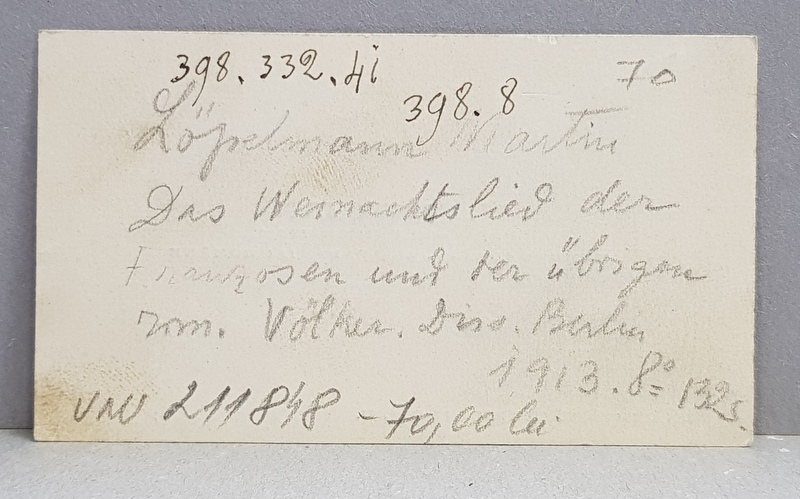 398.332.4i 70
398.8
Löpelmann Martin
Das Weinachtslied der
Franzosen und der übrigen
rom. Völker. Diss. Berlin
1913. 8° 132 s.
211848 - 70,00 lei